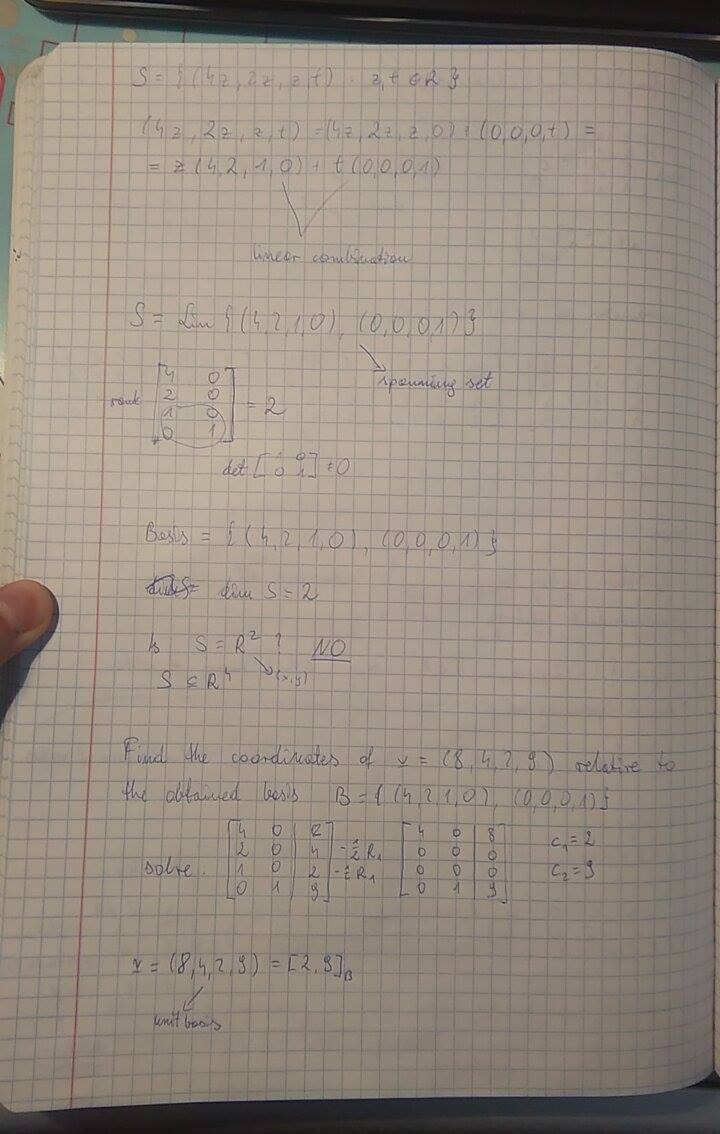 S = { (4z, 2z, z, t) : z, t ∈ R }
(4z, 2z, z, t) = (4z, 2z, z, 0) + (0, 0, 0, t) =
= z (4, 2, 1, 0) + t (0, 0, 0, 1)
linear combination
S = Lin { (4, 2, 1, 0), (0, 0, 0, 1) }
spanning set
rank [4 0
2 0
1 0
0 1] = 2
det [1 0
0 1] ≠ 0
Basis = { (4, 2, 1, 0), (0, 0, 0, 1) }
dim S = 2
Is S = R² ? NO
(x, y)
S ⊆ R⁴
Find the coordinates of v = (8, 4, 2, 9) relative to
the obtained basis B = { (4, 2, 1, 0), (0, 0, 0, 1) }
solve:
[4 0 | 8] [4 0 8] c₁ = 2
[2 0 | 4] - ½ R₁ [0 0 0]
[1 0 | 2] R₁ [0 0 0] c₂ = 9
[0 1 | 9] [0 1 9]
v = (8, 4, 2, 9) = [2, 9]_B
unit basis